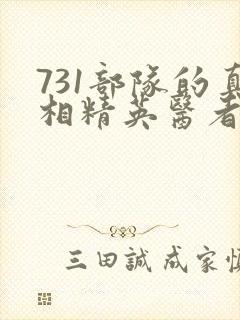 731部隊的真
相精英醫者
三田誠 成家慎